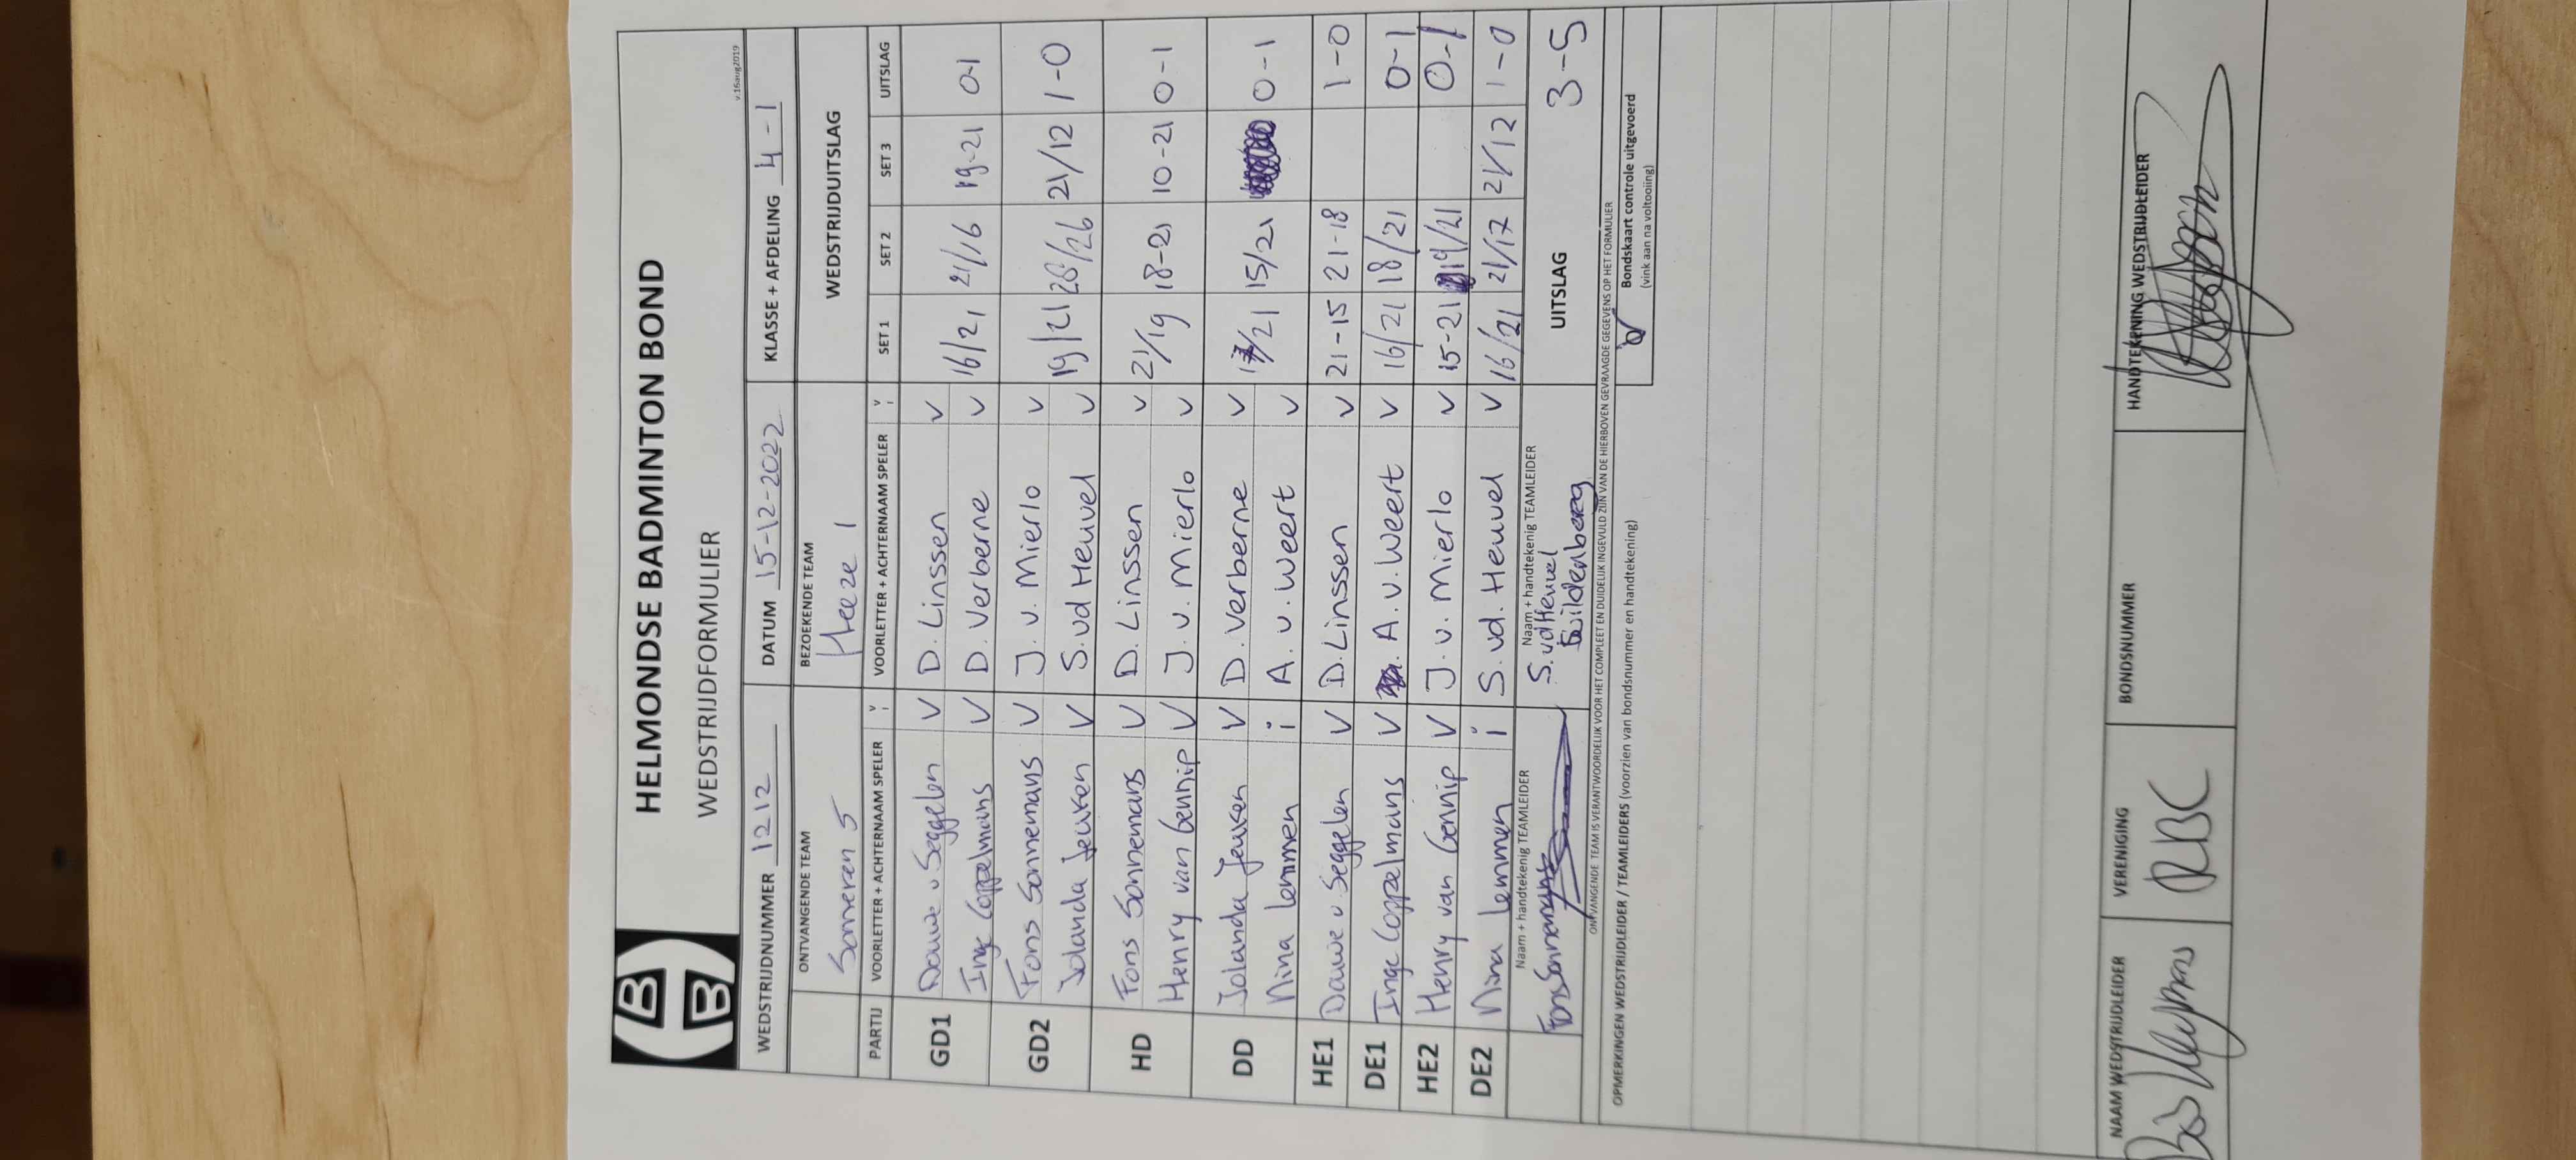 HELMONDSE BADMINTON BOND
WEDSTRIJDFORMULIER
v.16aug2019
WEDSTRIJDNUMMER 1212 DATUM 15-12-2022 KLASSE + AFDELING 4-1
ONTVANGENDE TEAM BEZOEKENDE TEAM WEDSTRIJDUITSLAG
Someren 5 Heeze 1
PARTIJ VOORLETTER + ACHTERNAAM SPELER v i VOORLETTER + ACHTERNAAM SPELER v i SET 1 SET 2 SET 3 UITSLAG
GD1 Douwe v Seggelen V D. Linssen v 16/21 21/16 19-21 0-1
Inge Coppelmans V D. Verberne v
GD2 Fons Sonnemans V J. v. Mierlo v 19/21 28/26 21/12 1-0
Jolanda Jeuken V S. vd Heuvel v
HD Fons Sonnemans V D. Linssen v 21/19 18-21 10-21 0-1
Henry van Gennip V J. v. Mierlo v
DD Jolanda Jeuken V D. Verberne v 17/21 15/21 0-1
Nina Lemmen i A. v. Weert v
HE1 Douwe v Seggelen V D. Linssen v 21-15 21-18 1-0
DE1 Inge Coppelmans V A. v. Weert v 16/21 18/21 0-1
HE2 Henry van Gennip V J. v. Mierlo v 15-21 19/21 0-1
DE2 Nina Lemmen i S. vd. Heuvel v 16/21 21/17 21/12 1-0
Naam + handtekenig TEAMLEIDER Naam + handtekenig TEAMLEIDER UITSLAG 3-5
Fons Sonnemans S. vd Heuvel
Buildenberg
ONTVANGENDE TEAM IS VERANTWOORDELIJK VOOR HET COMPLEET EN DUIDELIJK INGEVULD ZIJN VAN DE HIERBOVEN GEVRAAGDE GEGEVENS OP HET FORMULIER
OPMERKINGEN WEDSTRIJDLEIDER / TEAMLEIDERS (voorzien van bondsnummer en handtekening)
Bondskaart controle uitgevoerd
(vink aan na voltooiing)
NAAM WEDSTRIJDLEIDER VERENIGING BONDSNUMMER HANDTEKENING WEDSTRIJDLEIDER
Bas RBC